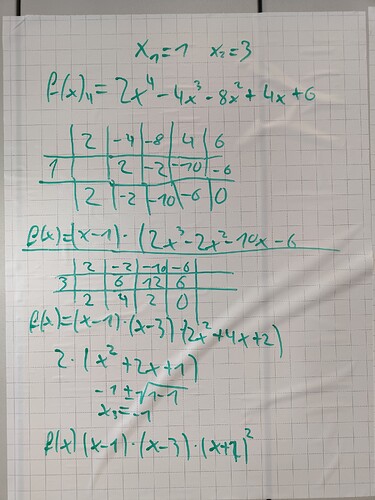 x₁=1 x₂=3
f(x)₄= 2x⁴-4x³-8x²+4x+6
2 -4 -8 4 6
1 2 -2 -10 -6
2 -2 -10 -6 0
f(x)=(x-1)·(2x³-2x²-10x-6
2 -2 -10 -6
3 6 12 6
2 4 2 0
f(x)=(x-1)·(x-3)·(2x²+4x+2)
2·(x²+2x+1)
-1±√1-1
x₃=-1
f(x)(x-1)·(x-3)·(x+1)²